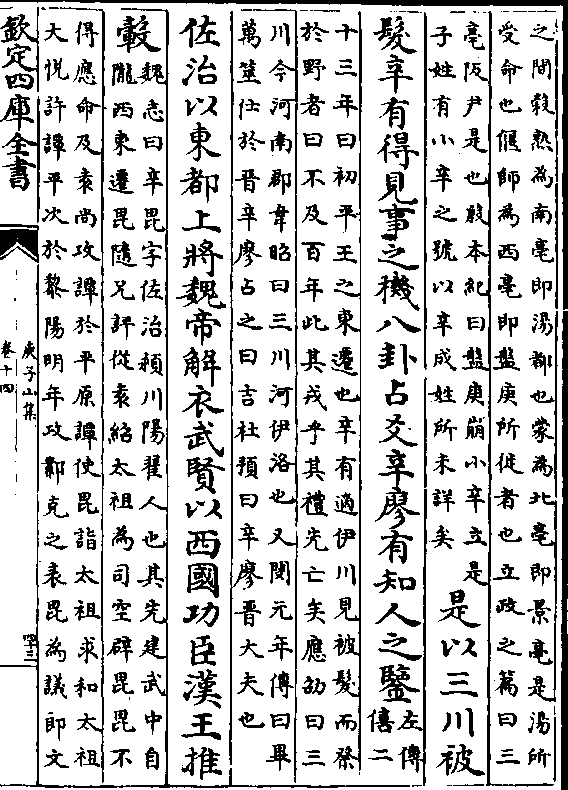 之間穀熟為南亳即湯都也蒙為北亳即景亳是湯所
受命也偃師為西亳即盤庚所徙者也立政之篇曰三
亳阪尹是也殷本紀曰盤庚崩小辛立是
子姓有小辛之號以辛成姓所未詳矣
是以三川被
髮辛有得見事之機八卦占爻辛廖有知人之鑒
左傳
僖二
十三年曰初平王之東遷也辛有適伊川見被髮而祭
於野者曰不及百年此其戎乎其禮先亡矣應劭曰三
川今河南郡韋昭曰三川河伊洛也又閔元年傳曰畢
萬筮仕於晉辛廖占之曰吉杜預曰辛廖晉大夫也
佐治以東都上將魏帝解衣武賢以西國功臣漢王推
轂
魏志曰辛毘字佐治潁川陽翟人也其先建武中自
隴西東遷毘隨兄評從袁紹太祖為司空辟毘毘不
得應命及袁尚攻譚於平原譚使毘詣太祖求和太祖
大悅許譚平次於黎陽明年攻鄴克之表毘為議郎文
欽定四庫全書
庾子山集
卷十四